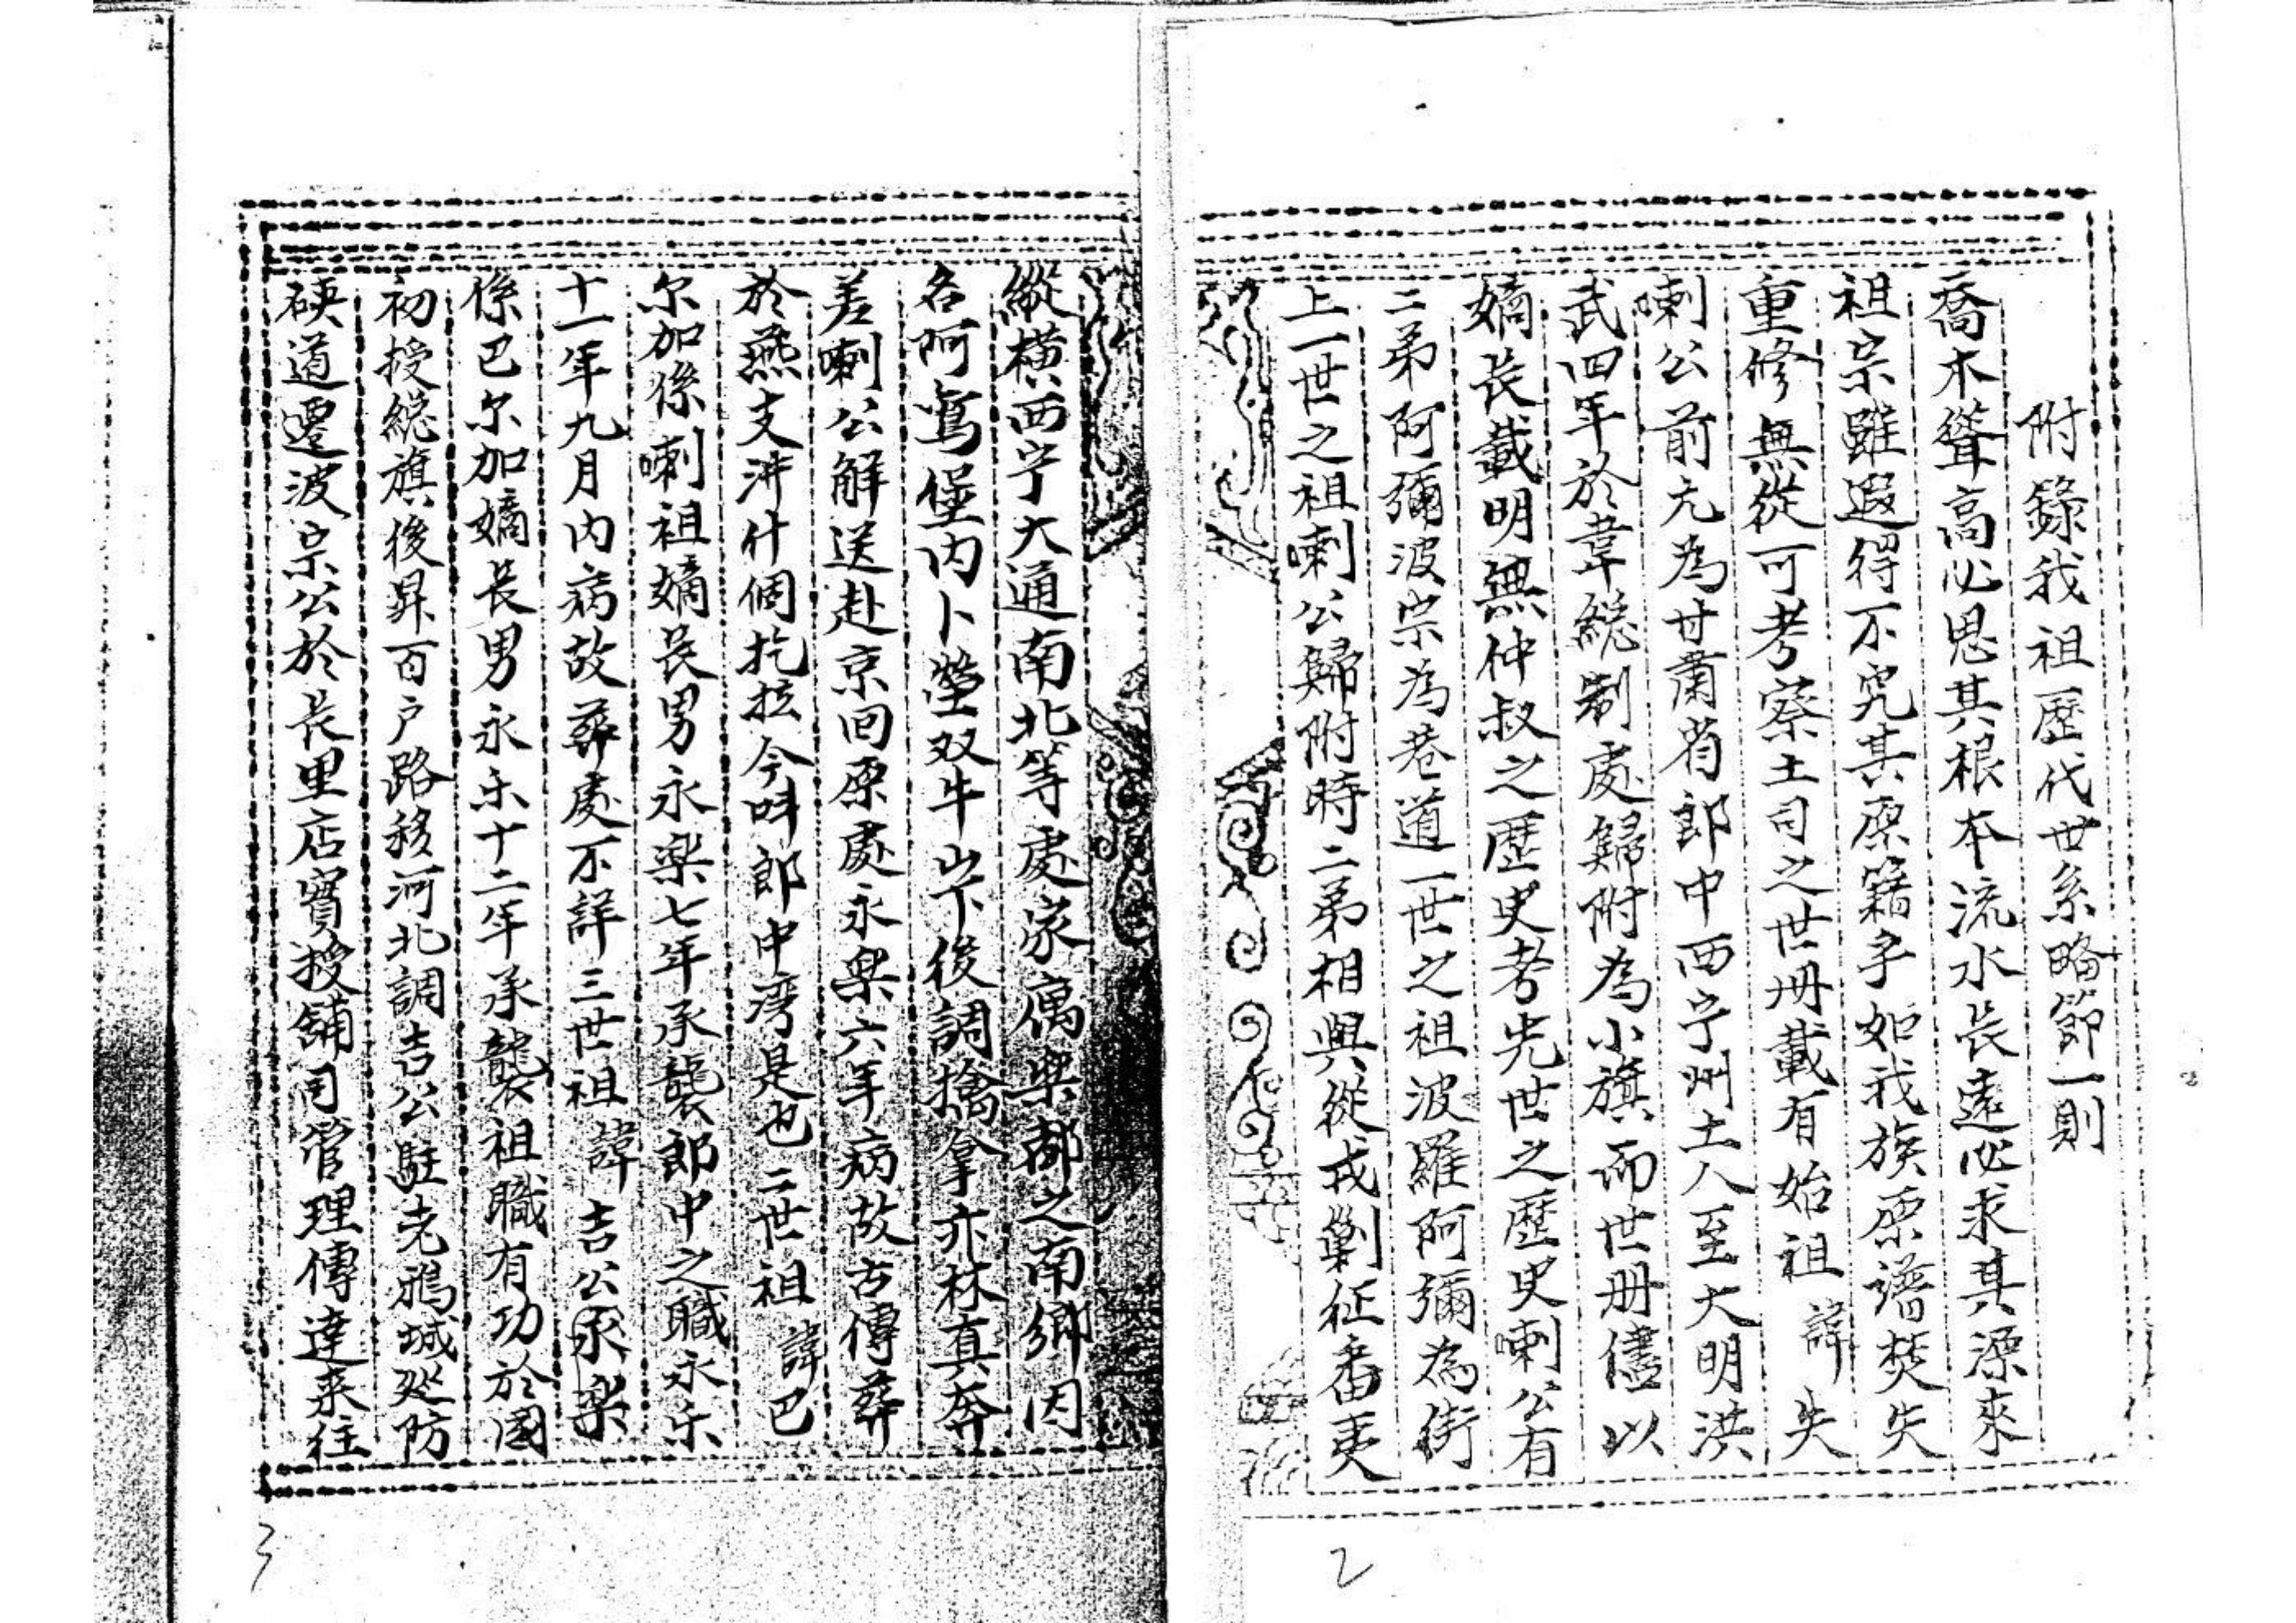 附錄我祖歷代世系略節一則
喬木聳高必思其根本流水長遠必求其源來
祖宗雖遐得不究其原籍乎如我族原譜焚失
重修無從可考察土司之世册載有始祖 諱 失
喇公前元為甘肅省郎中西宁州土人至大明洪
武四年於韋總制處歸附為小旗而世册儘以
嫡長載明無仲叔之歷史考先世之歷史喇公有
二弟阿彌波宗為巷道一世之祖波羅阿彌為街
上一世之祖喇公歸附時二弟相與從戎剿征番夷
2
縱横西宁大通南北等處家寓樂都之南鄉因
名阿鸞堡内卜塋双牛山下後調擒拿亦林真奔
差喇公解送赴京回原處永樂六年病故古傳葬
於燕支溝什個扢拉今呌郎中湾是也二世祖 諱巴
尔加係喇祖嫡長男永樂七年承襲郎中之職永乐
十一年九月内病故葬處不詳三世祖 諱吉公永樂
係巴尔加嫡長男永乐十二年承襲祖職有功於國
初授總旗後昇百户路移河北調吉公駐老鴉城廵防
硤道遷波宗公於長里店實授鋪司管理傳達来往
3